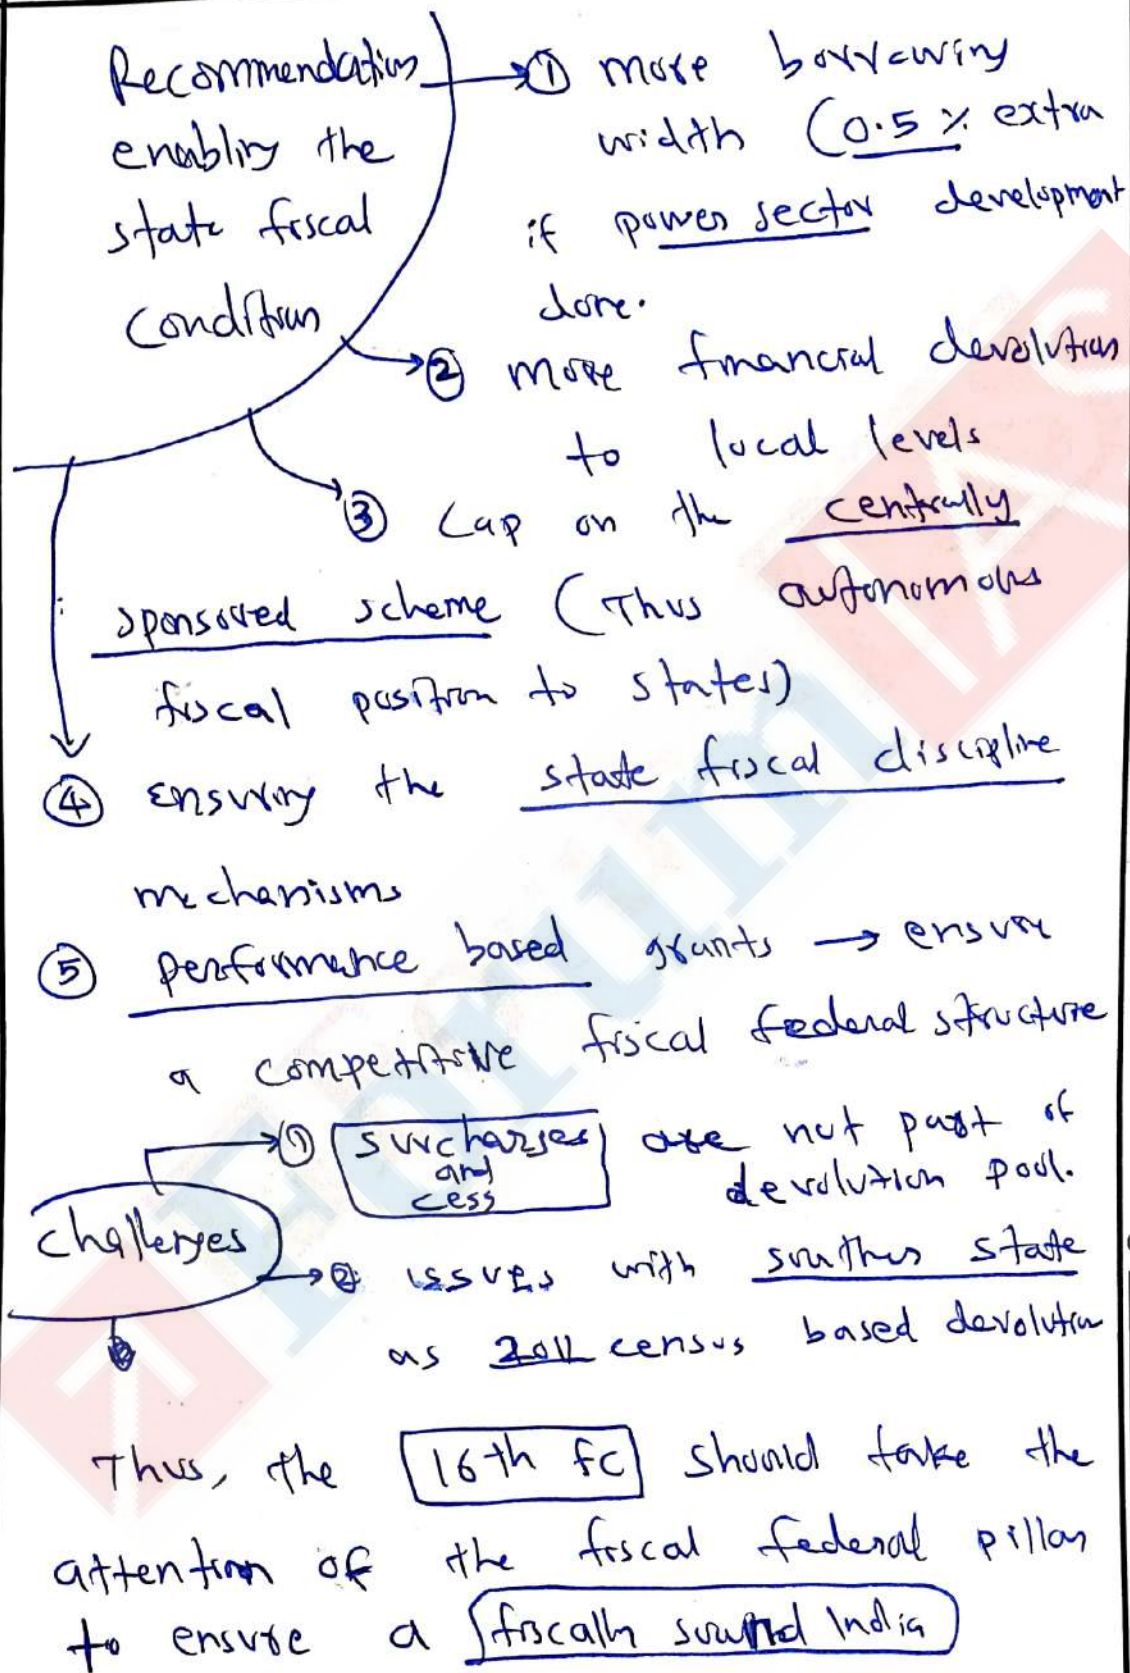 Recommendations
enabling the
state fiscal
Conditions
① more borrowing
width (0.5 % extra
if power sector development
done.
② more financial devolution
to local levels
③ Cap on the centrally
sponsored scheme (Thus autonomous
fiscal position to states)
④ ensuring the state fiscal discipline
mechanisms
⑤ performance based grants → ensure
a competitive fiscal federal structure
Challenges
① surcharges
and
cess
are not part of
devolution pool.
② issues with southern state
as 2011 census based devolution
Thus, the 16th fc should take the
attention of the fiscal federal pillar
to ensure a fiscally sound India
Forum IAS